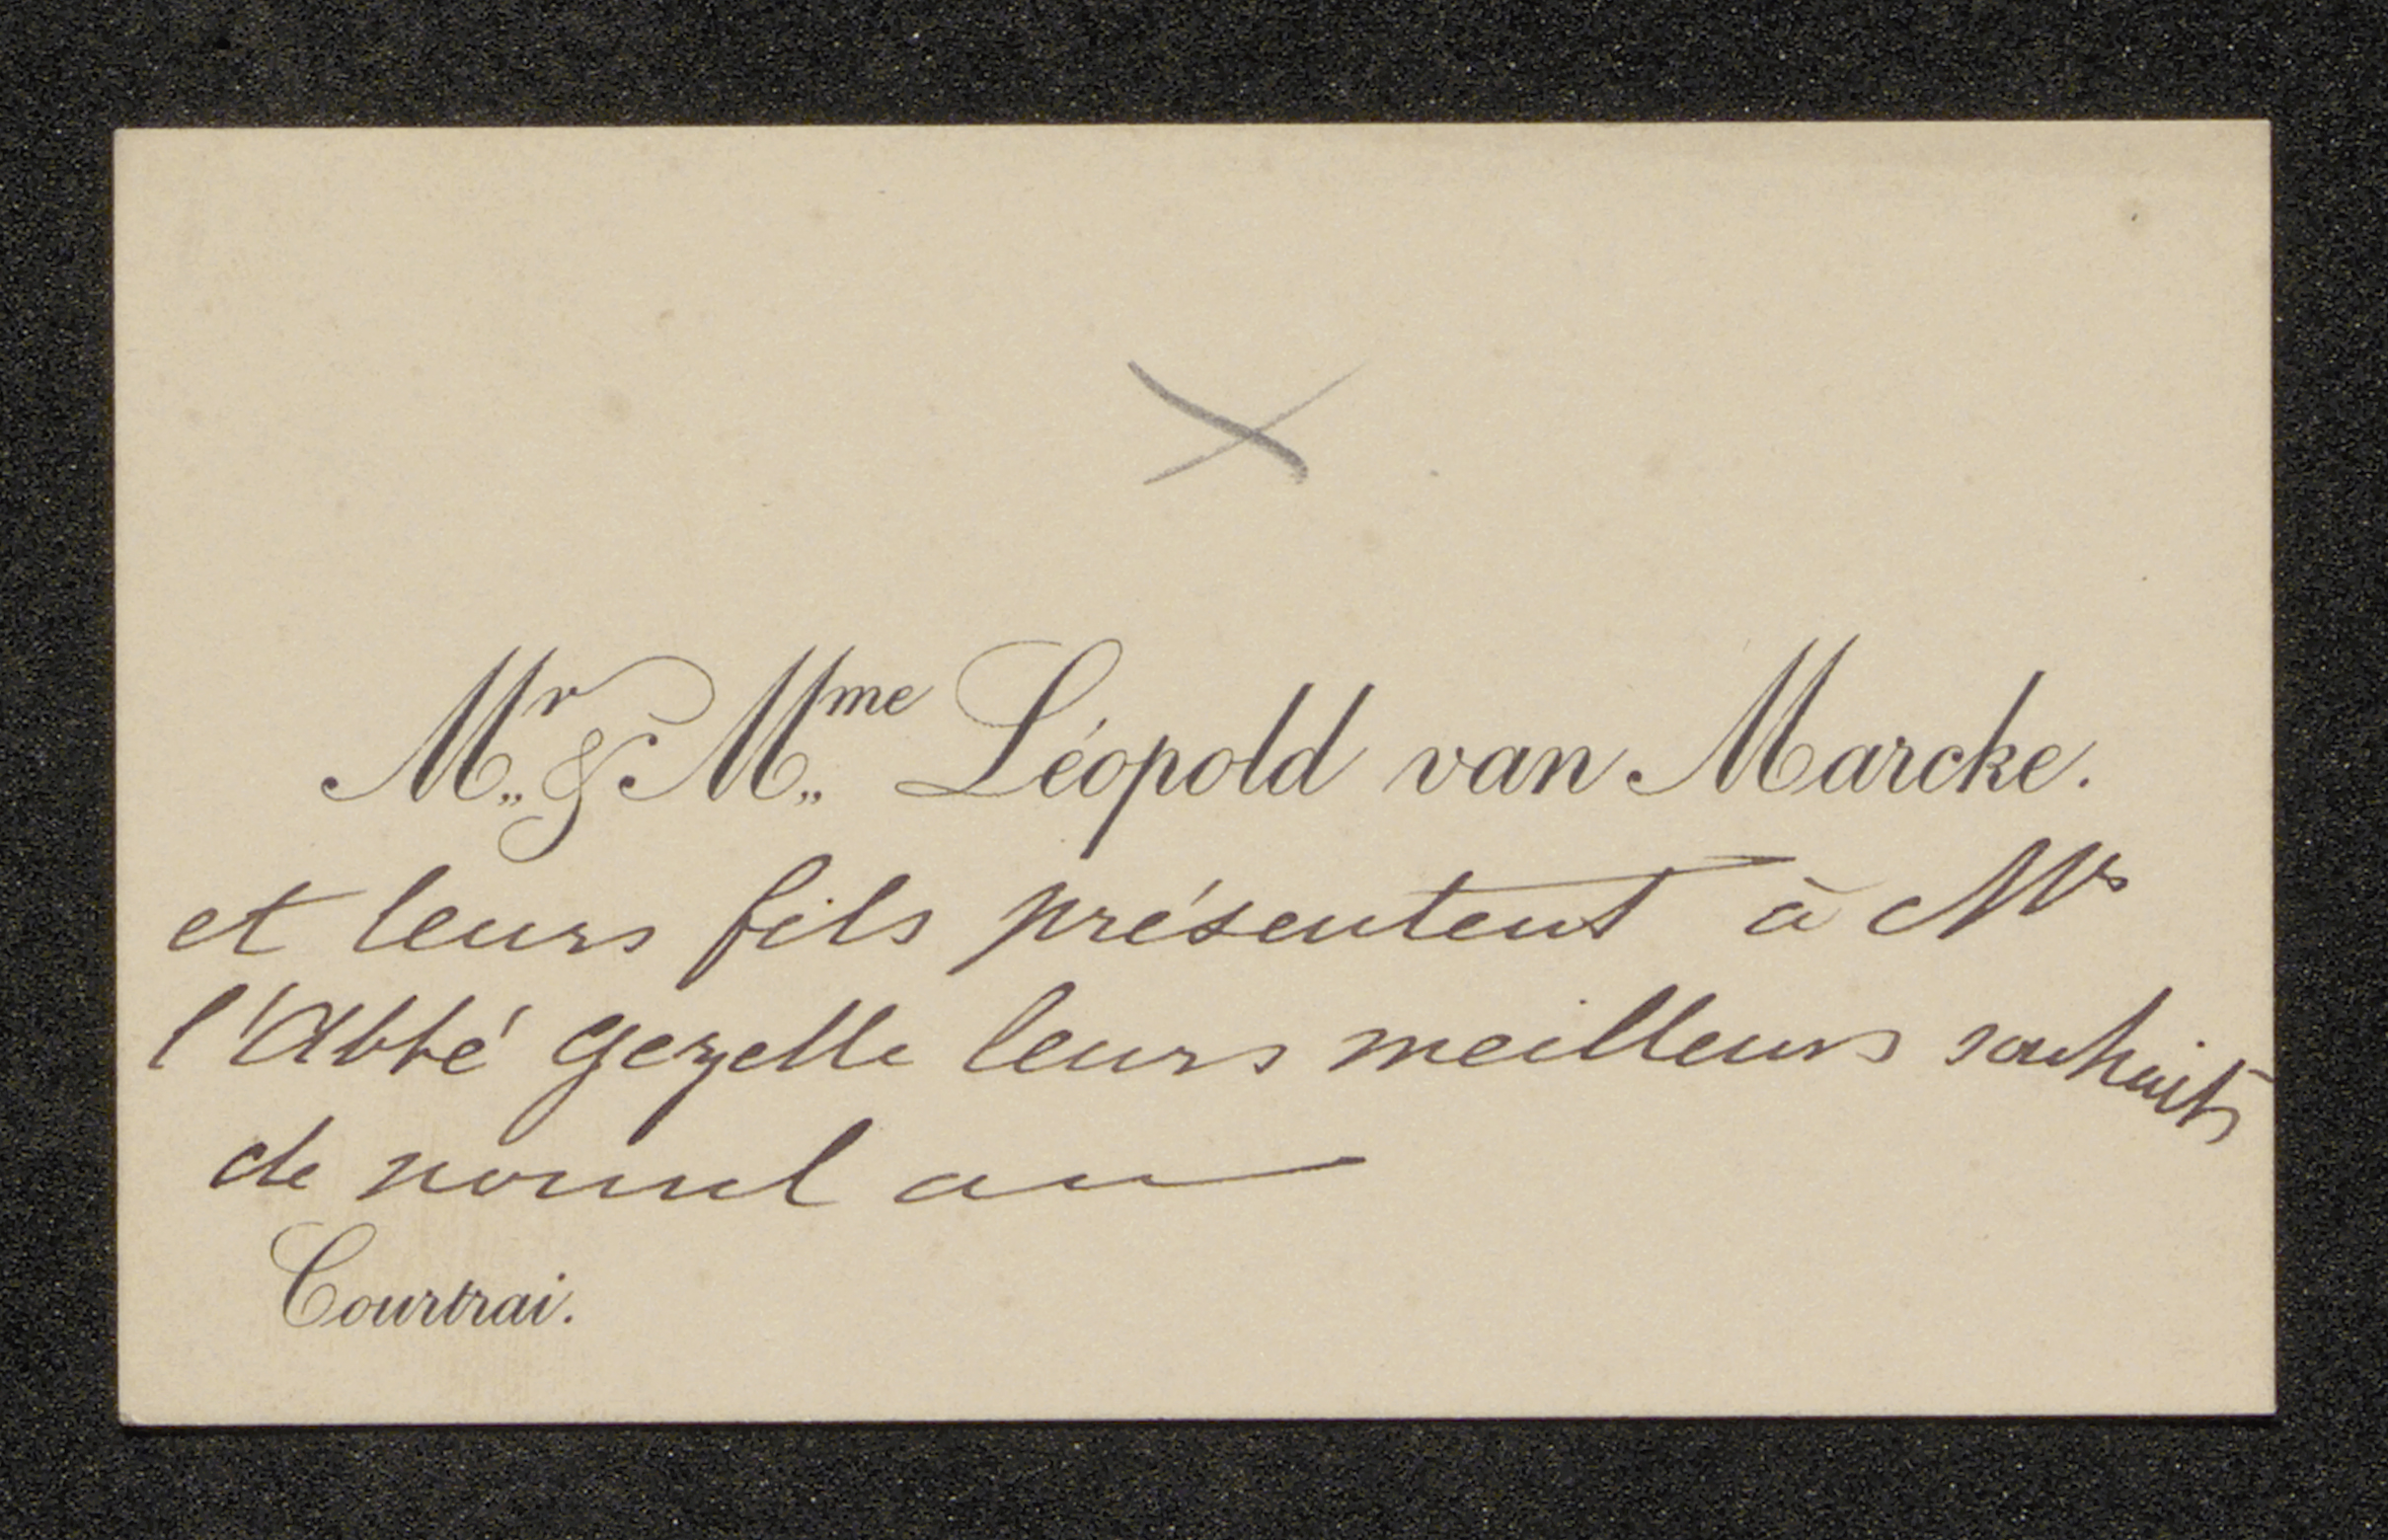 Mr. & Mme. Léopold van Marcke.
et leurs fils présentent à Mr
l'Abbé Gezelle leurs meilleurs souhaits
de nouvel an
Courtrai.